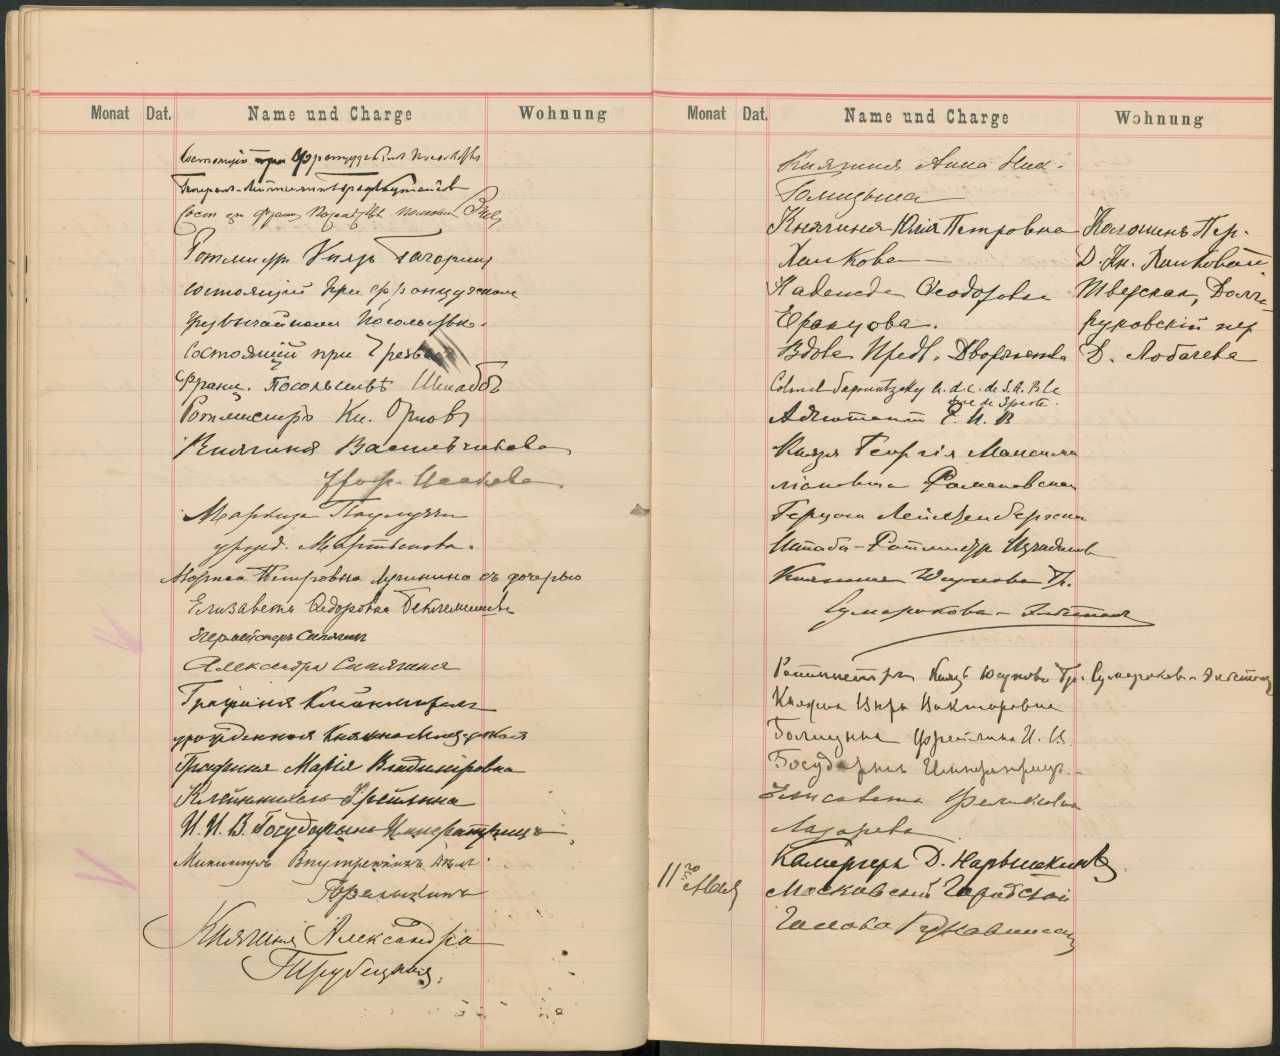 Monat Dat. Name und Charge Wohnung
Состоящій при Французск. Посольствѣ
Генералъ-Лейтенантъ
Сост. при Франц.
Ротмистръ Князь Гагаринъ
состоящій при французскомъ
чрезвычайномъ посольствѣ.
Состоящій при Чрезвыч.
Франц. Посольствѣ Штабсъ
Ротмистръ Кн. Орловъ
Княгиня Васильчикова
Граф. Исакова
Маркиза Паулуччи
урожд. Мартынова.
Марія Петровна Лугинина съ дочерью
Елизавета Федоровна Беклемишева
Егермейстеръ Сипягинъ
Александра Сипягина
Графиня Клейнмихель
урожденная Княжна Мещерская
Графиня Марія Владиміровна
Клейнмихель Фрейлина
И. И. В. Государынь Императрицъ
Министръ Внутреннихъ Дѣлъ.
Горемыкинъ
Княгиня Александра
Трубецкая.
Monat Dat. Name und Charge Wohnung
Княгиня Анна Ник.
Голицына
Княгиня Юлія Петровна Колошинъ Пер.
Хилкова Д. Кн. Хилковой
Надежда Феодоровна Тверская, Долго-
Ершова. руковскій пер
Вдова Предв. Дворянства Д. Лобачева
Colonel a. d. c. de S. A. R. le
Duc de Sparte.
Адъютантъ Е. И. В
Князя Георгія Максими
ліановича Романовскаго
Герцога Лейхтенбергскаго
Штабъ-Ротмистръ
Княгиня Юсупова Гр.
Сумарокова-Эльстонъ
Ротмистръ Князь Юсуповъ Гр. Сумароковъ-Эльстонъ
Княжна Вѣра Викторовна
Голицына Фрейлина И. В.
Государынь Императрицъ.
Елисавета
Лазарева
Камергеръ Д. Нарышкинъ
11го Мая Московскій Городской
Голова Рукавишниковъ